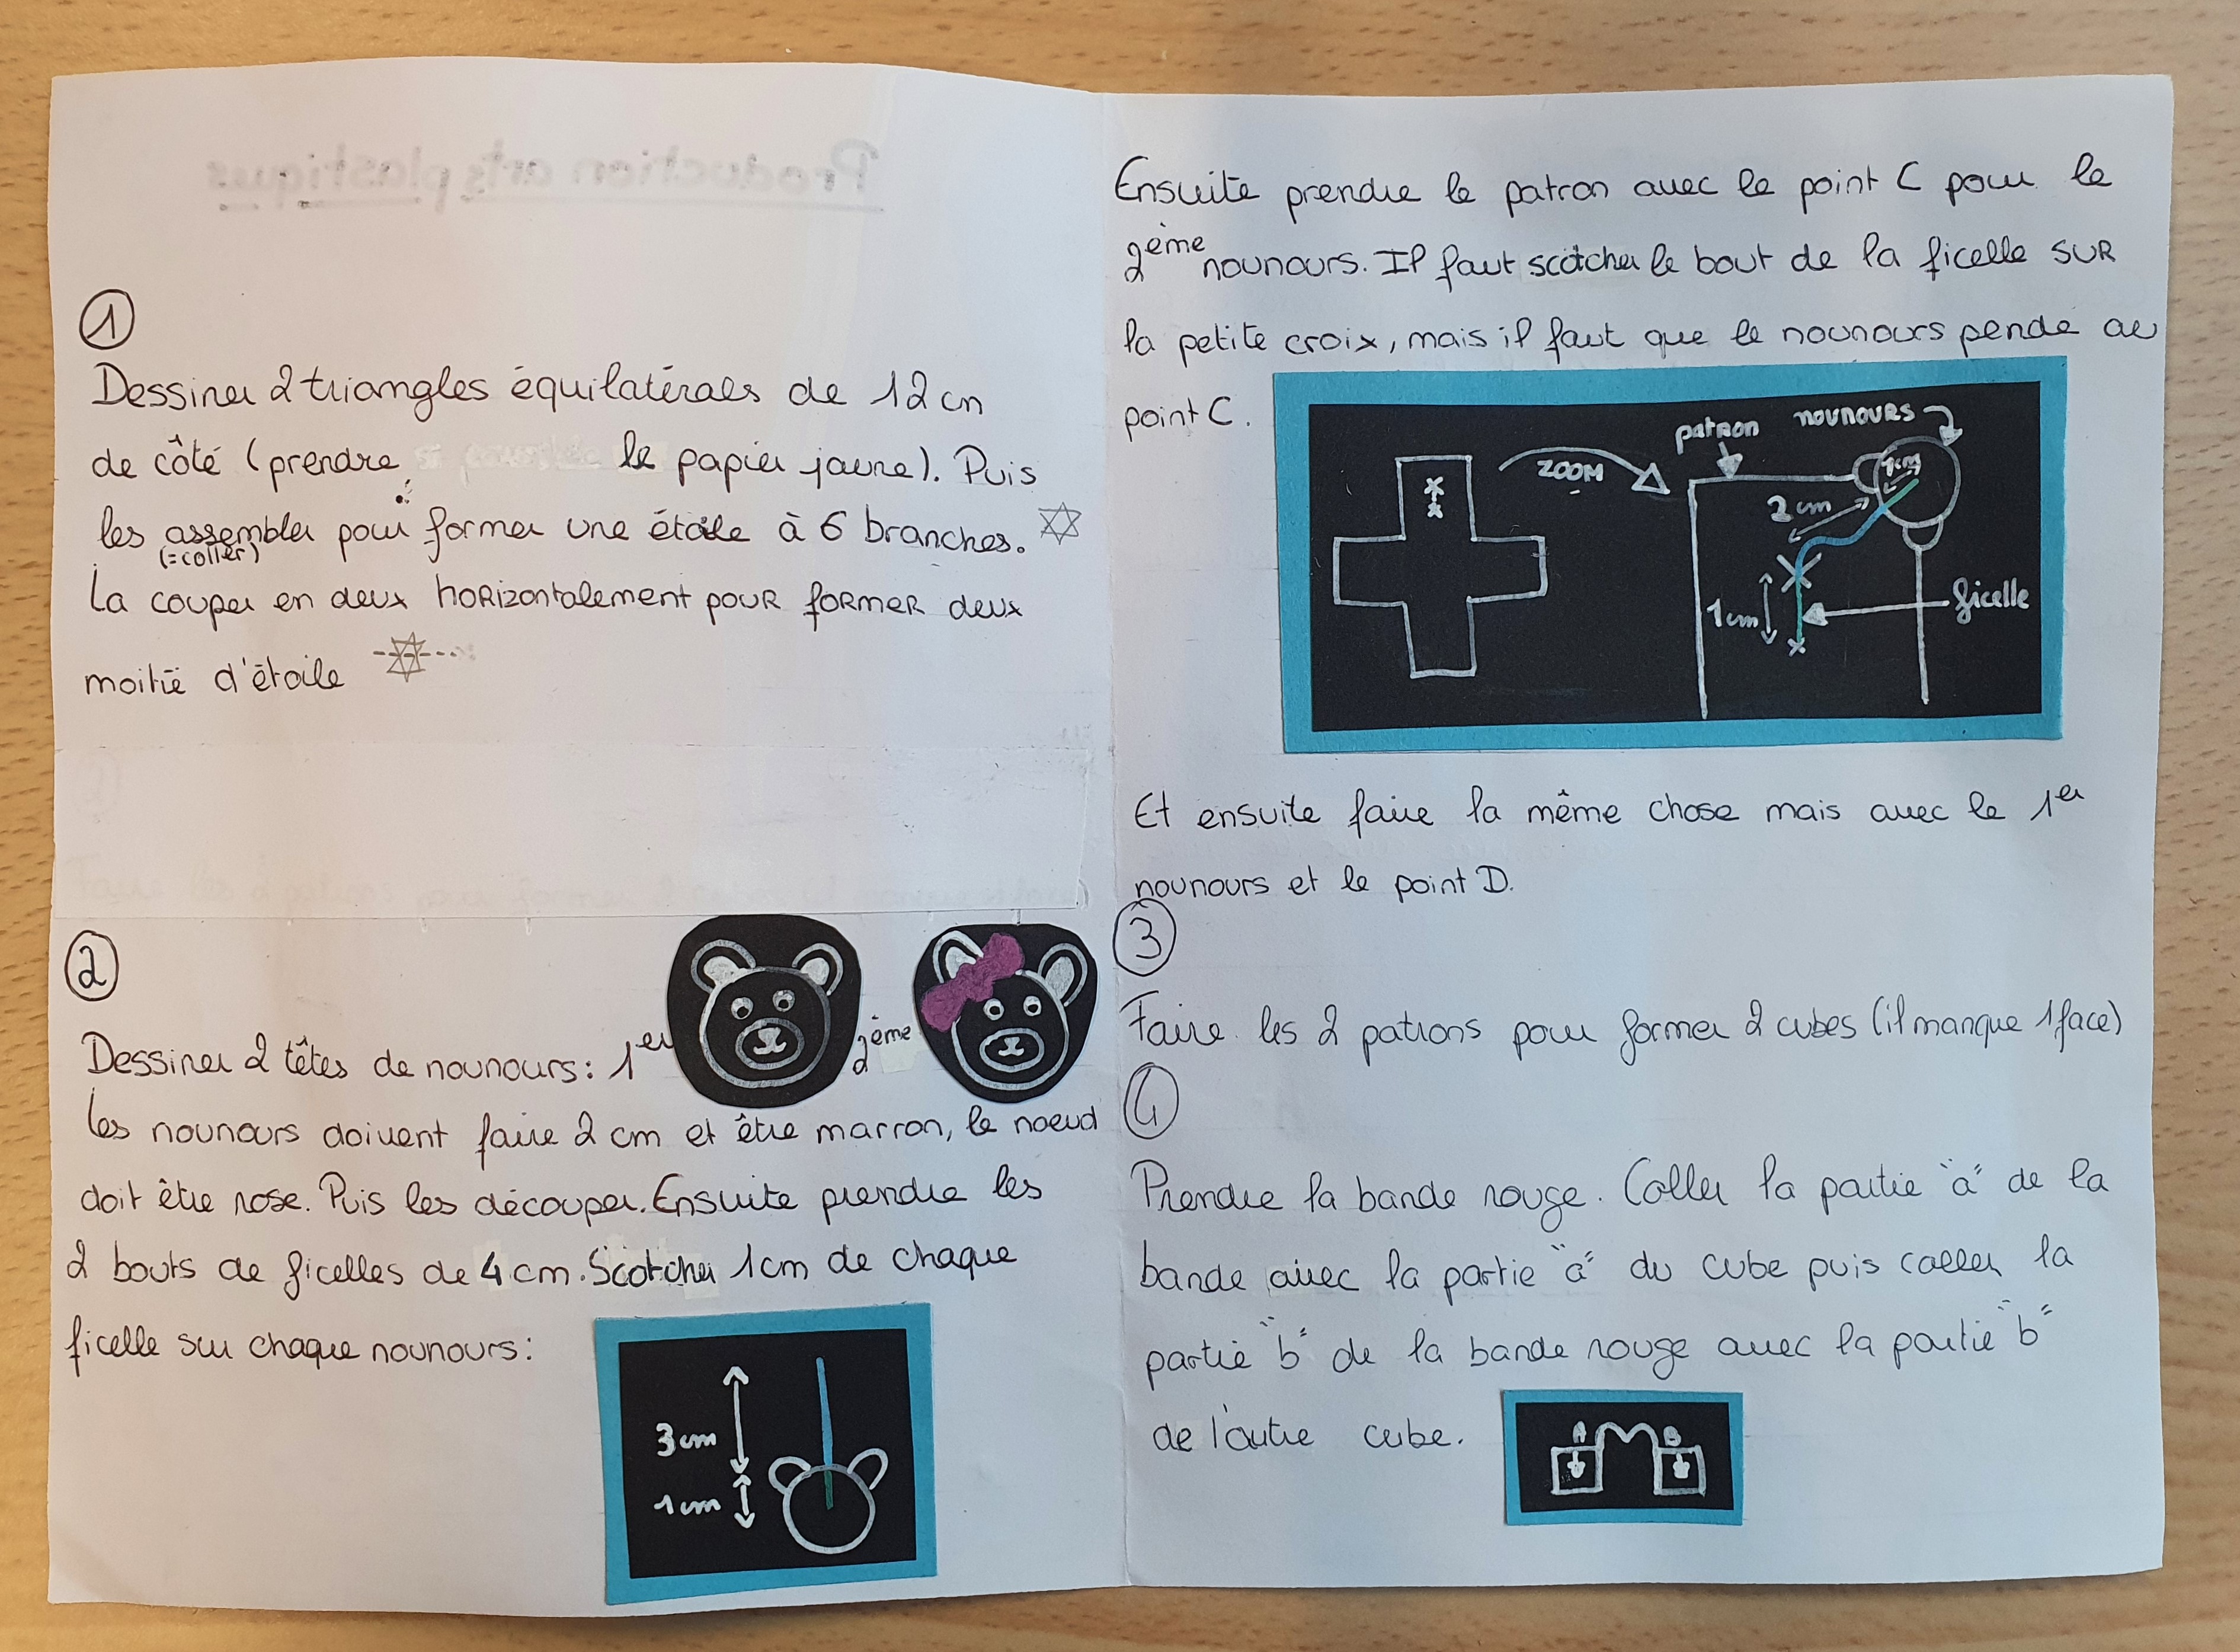 Production arts plastiques
①
Dessiner 2 triangles équilatéraes de 12 cm
de côté (prendre le papier jaune). Puis
les assembler pour former une étoile à 6 branches.
(=coller)
La couper en deux horizontalement pour former deux
moitié d'étoile
②
Dessiner 2 têtes de nounours : 1er 2ème
Les nounours doivent faire 2 cm et être marron, le noeud
doit être rose. Puis les découper. Ensuite prendre les
2 bouts de ficelles de 4 cm. Scotcher 1cm de chaque
ficelle sur chaque nounours :
3 cm
1 cm
Ensuite prendre le patron avec le point C pour le
2ème nounours. Il faut scotcher le bout de la ficelle SUR
la petite croix, mais il faut que le nounours pende au
point C.
patron
nounours
ZOOM
1cm
2 cm
1cm
ficelle
Et ensuite faire la même chose mais avec le 1er
nounours et le point D.
③
Faire les 2 patrons pour former 2 cubes (il manque 1 face)
④
Prendre la bande rouge. Coller la partie "a" de la
bande avec la partie "a" du cube puis coller la
partie "b" de la bande rouge avec la partie "b"
de l'autre cube.
A B